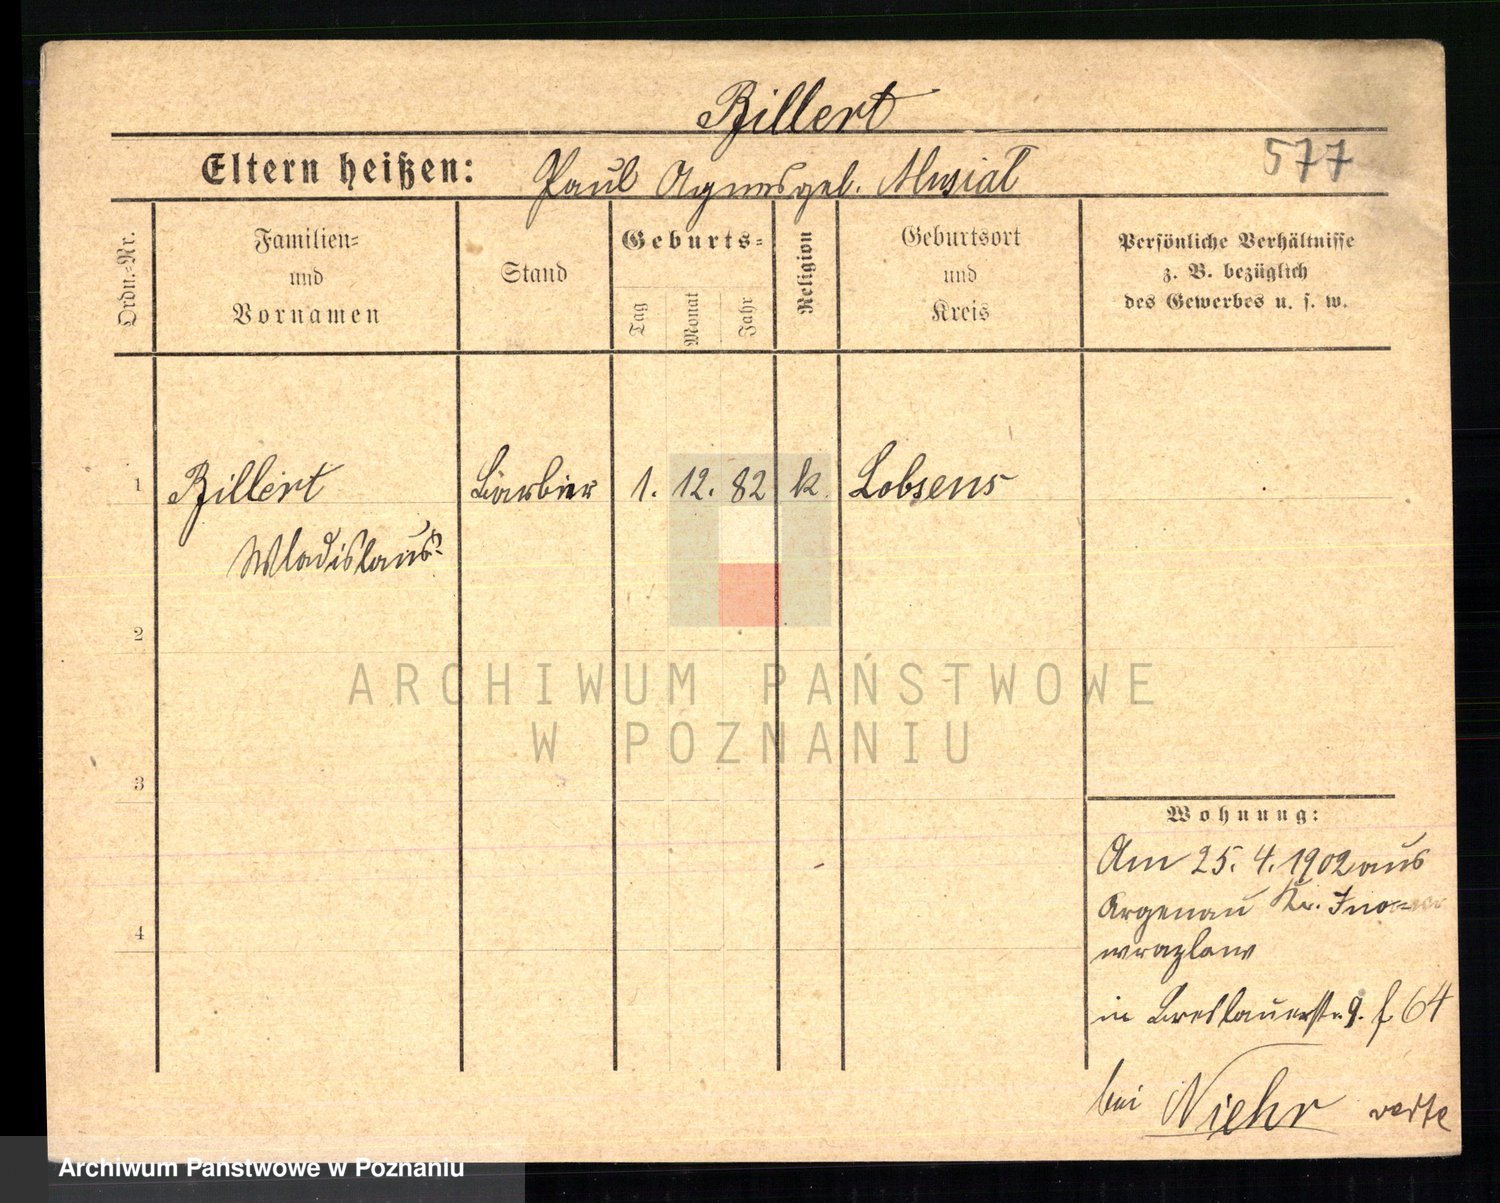 Billert
Eltern heißen: Paul Agnes geb. Musial
577
Ordn.-Nr.
Familien-
und
Vornamen
Stand
Geburts-
Tag
Monat
Jahr
Religion
Geburtsort
und
Kreis
Persönliche Verhältnisse
z. B. bezüglich
des Gewerbes u. s. w.
1 Billert Barbier 1. 12. 82 k. Lobsens
Wladislaus
2
3
4
Wohnung:
Am 25. 4. 1902 aus
Argenau Kr. Ino-
wrazlaw
in Breslauerstr. 9. f 64
bei Niehr verte
ARCHIWUM PAŃSTWOWE
W POZNANIU
Archiwum Państwowe w Poznaniu